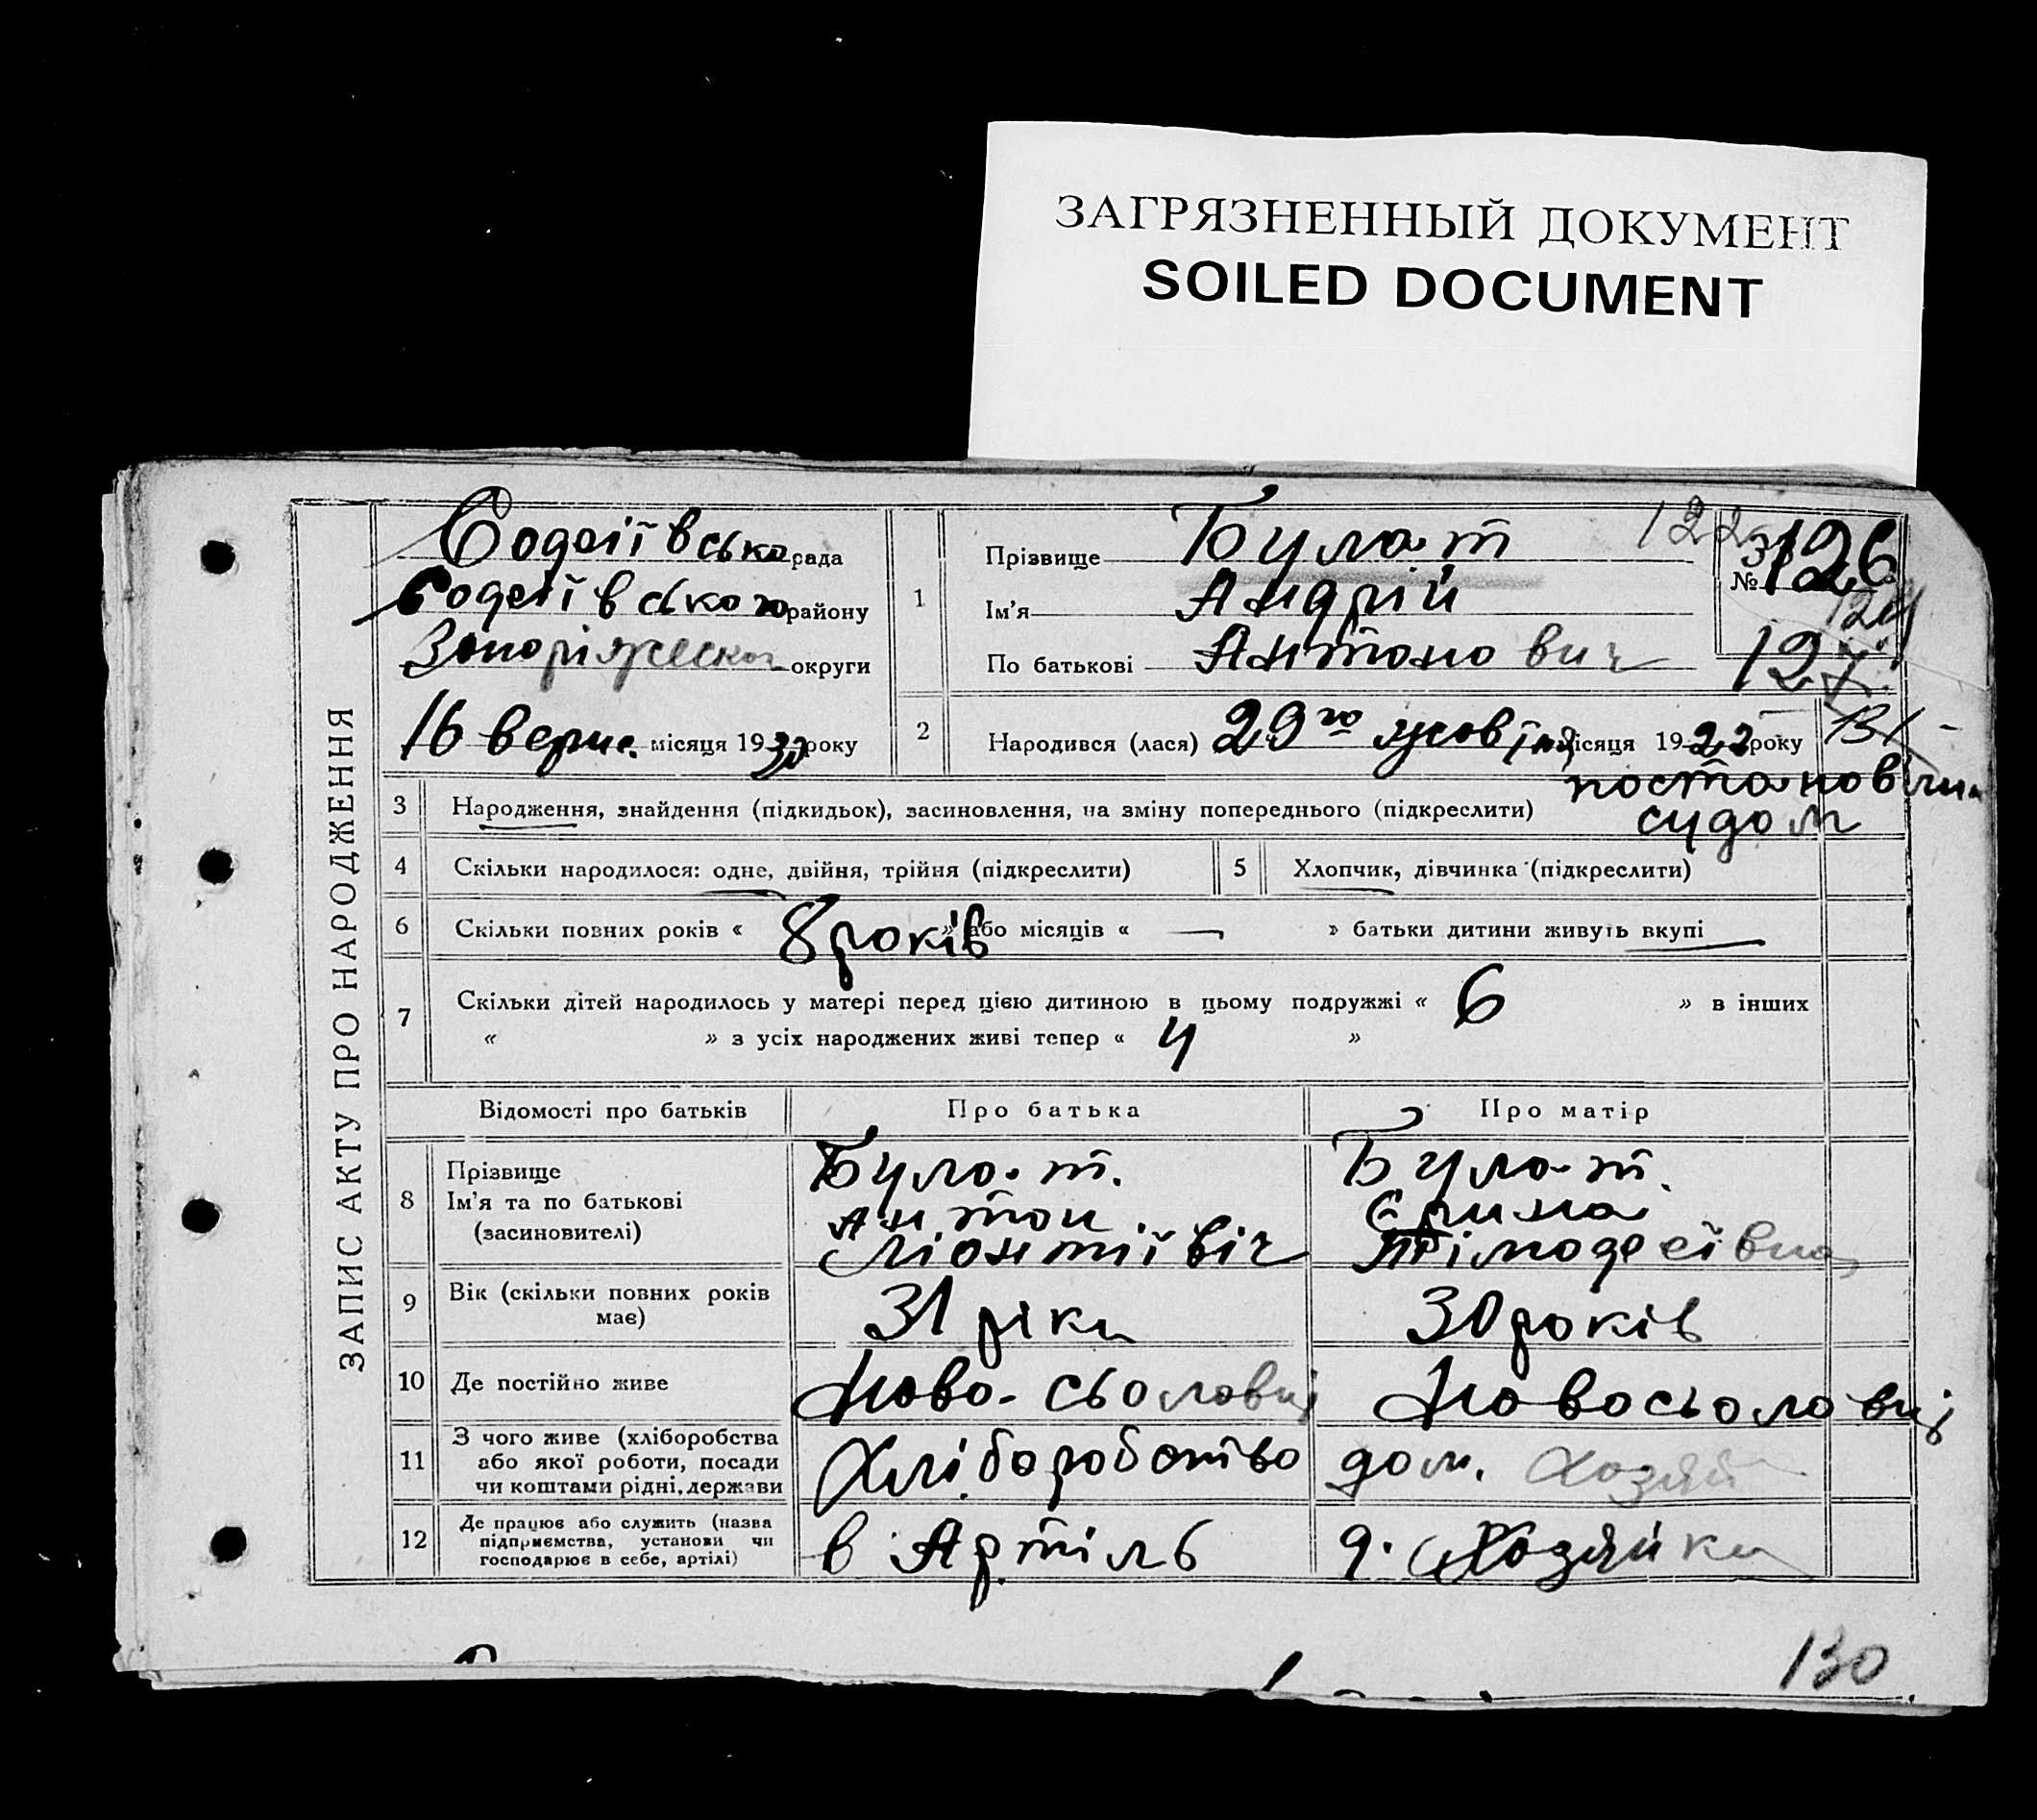 ЗАГРЯЗНЕННЫЙ ДОКУМЕНТ
SOILED DOCUMENT
ЗАПИС АКТУ ПРО НАРОДЖЕННЯ
рада
району
округи
16 верис. місяця 1930 року
1
Прізвище Булат
Ім’я Андрій
По батькові Антонович
122
№ 126
124
127
131
2 Народився (лася) 29го жовтня місяця 1922 року
3 Народження, знайдення (підкидьок), засиновлення, на зміну попереднього (підкреслити)
судом
4 Скільки народилося: одне, двійня, трійня (підкреслити)
5 Хлопчик, дівчинка (підкреслити)
6 Скільки повних років « 8 років » або місяців « — » батьки дитини живуть вкупі
7 Скільки дітей народилось у матері перед цією дитиною в цьому подружжі « 6 » в інших
« » з усіх народжених живі тепер « 4 »
Відомості про батьків
Про батька
Про матір
8 Прізвище
Ім’я та по батькові
(засиновителі)
Булат.
Антон
Ліонтіївіч
Булат.
9 Вік (скільки повних років
має)
31 ріки
30 років
10 Де постійно живе
Ново-сьоловці
Новосьоловці
11 З чого живе (хліборобства
або якої роботи, посади
чи коштами рідні, держави
Хліборобство
дом. хозяй
12 Де працює або служить (назва
підприємства, установи чи
господарює в себе, артілі)
в Артіль
д. Хозяйка
130